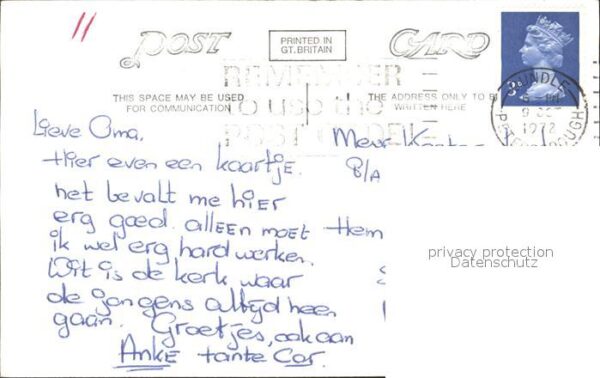 11
POST CARD
PRINTED IN
GT. BRITAIN
THIS SPACE MAY BE USED
FOR COMMUNICATION
THE ADDRESS ONLY TO BE
WRITTEN HERE
REMEMBER
to use the
POST CODE
UNDLE
9
1972
Lieve Oma,
Hier even een kaartje.
het bevalt me hier
erg goed. alleen moet
ik wel erg hard werken.
Dit is de kerk waar
de jongens altijd heen
gaan. Groetjes, ook aan
Anke tante Cor.
Mevr
8/A
Hem
privacy protection
Datenschutz